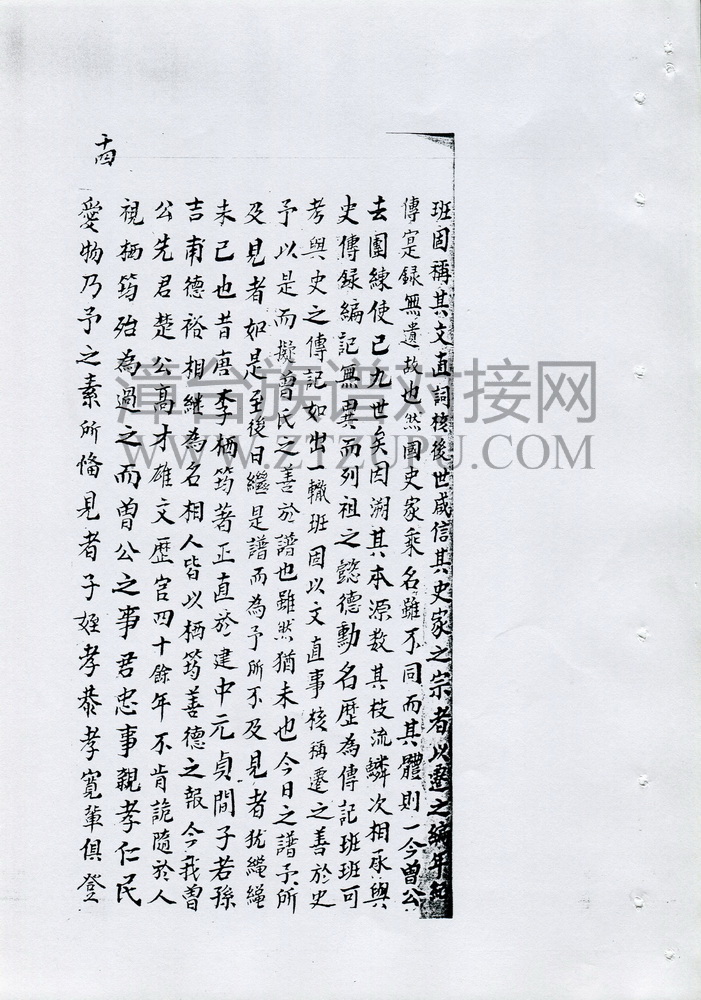 班固稱其文直詞核後世咸信其史家之宗者以遷之編年紀
傳寔録無遺故也然國史家乘名雖不同而其體則一今曾公
去團練使已九世矣因溯其本源数其枝流鱗次相承與
史傳録編記無異而列祖之懿德勳名歷為傳記班班可
考與史之傳記如出一轍班固以文直事核稱遷之善於史
予以是而擬曾氏之善於譜也雖然猶未也今日之譜予所
及見者如是至後日繼是譜而為予所不及見者犹繩繩
未已也昔唐李栖筠著正直於建中元貞間子若孫
吉甫德裕相継為名相人皆以栖筠善德之報今我曾
公先君楚公高才雄文歷官四十餘年不肯詭隨於人
視栖筠殆為過之而曾公之事君忠事親孝仁民
愛物乃予之素所俻見者子姪孝恭孝寬輩俱登
十四
漳台族谱对接网
WWW.ZTZUPU.COM